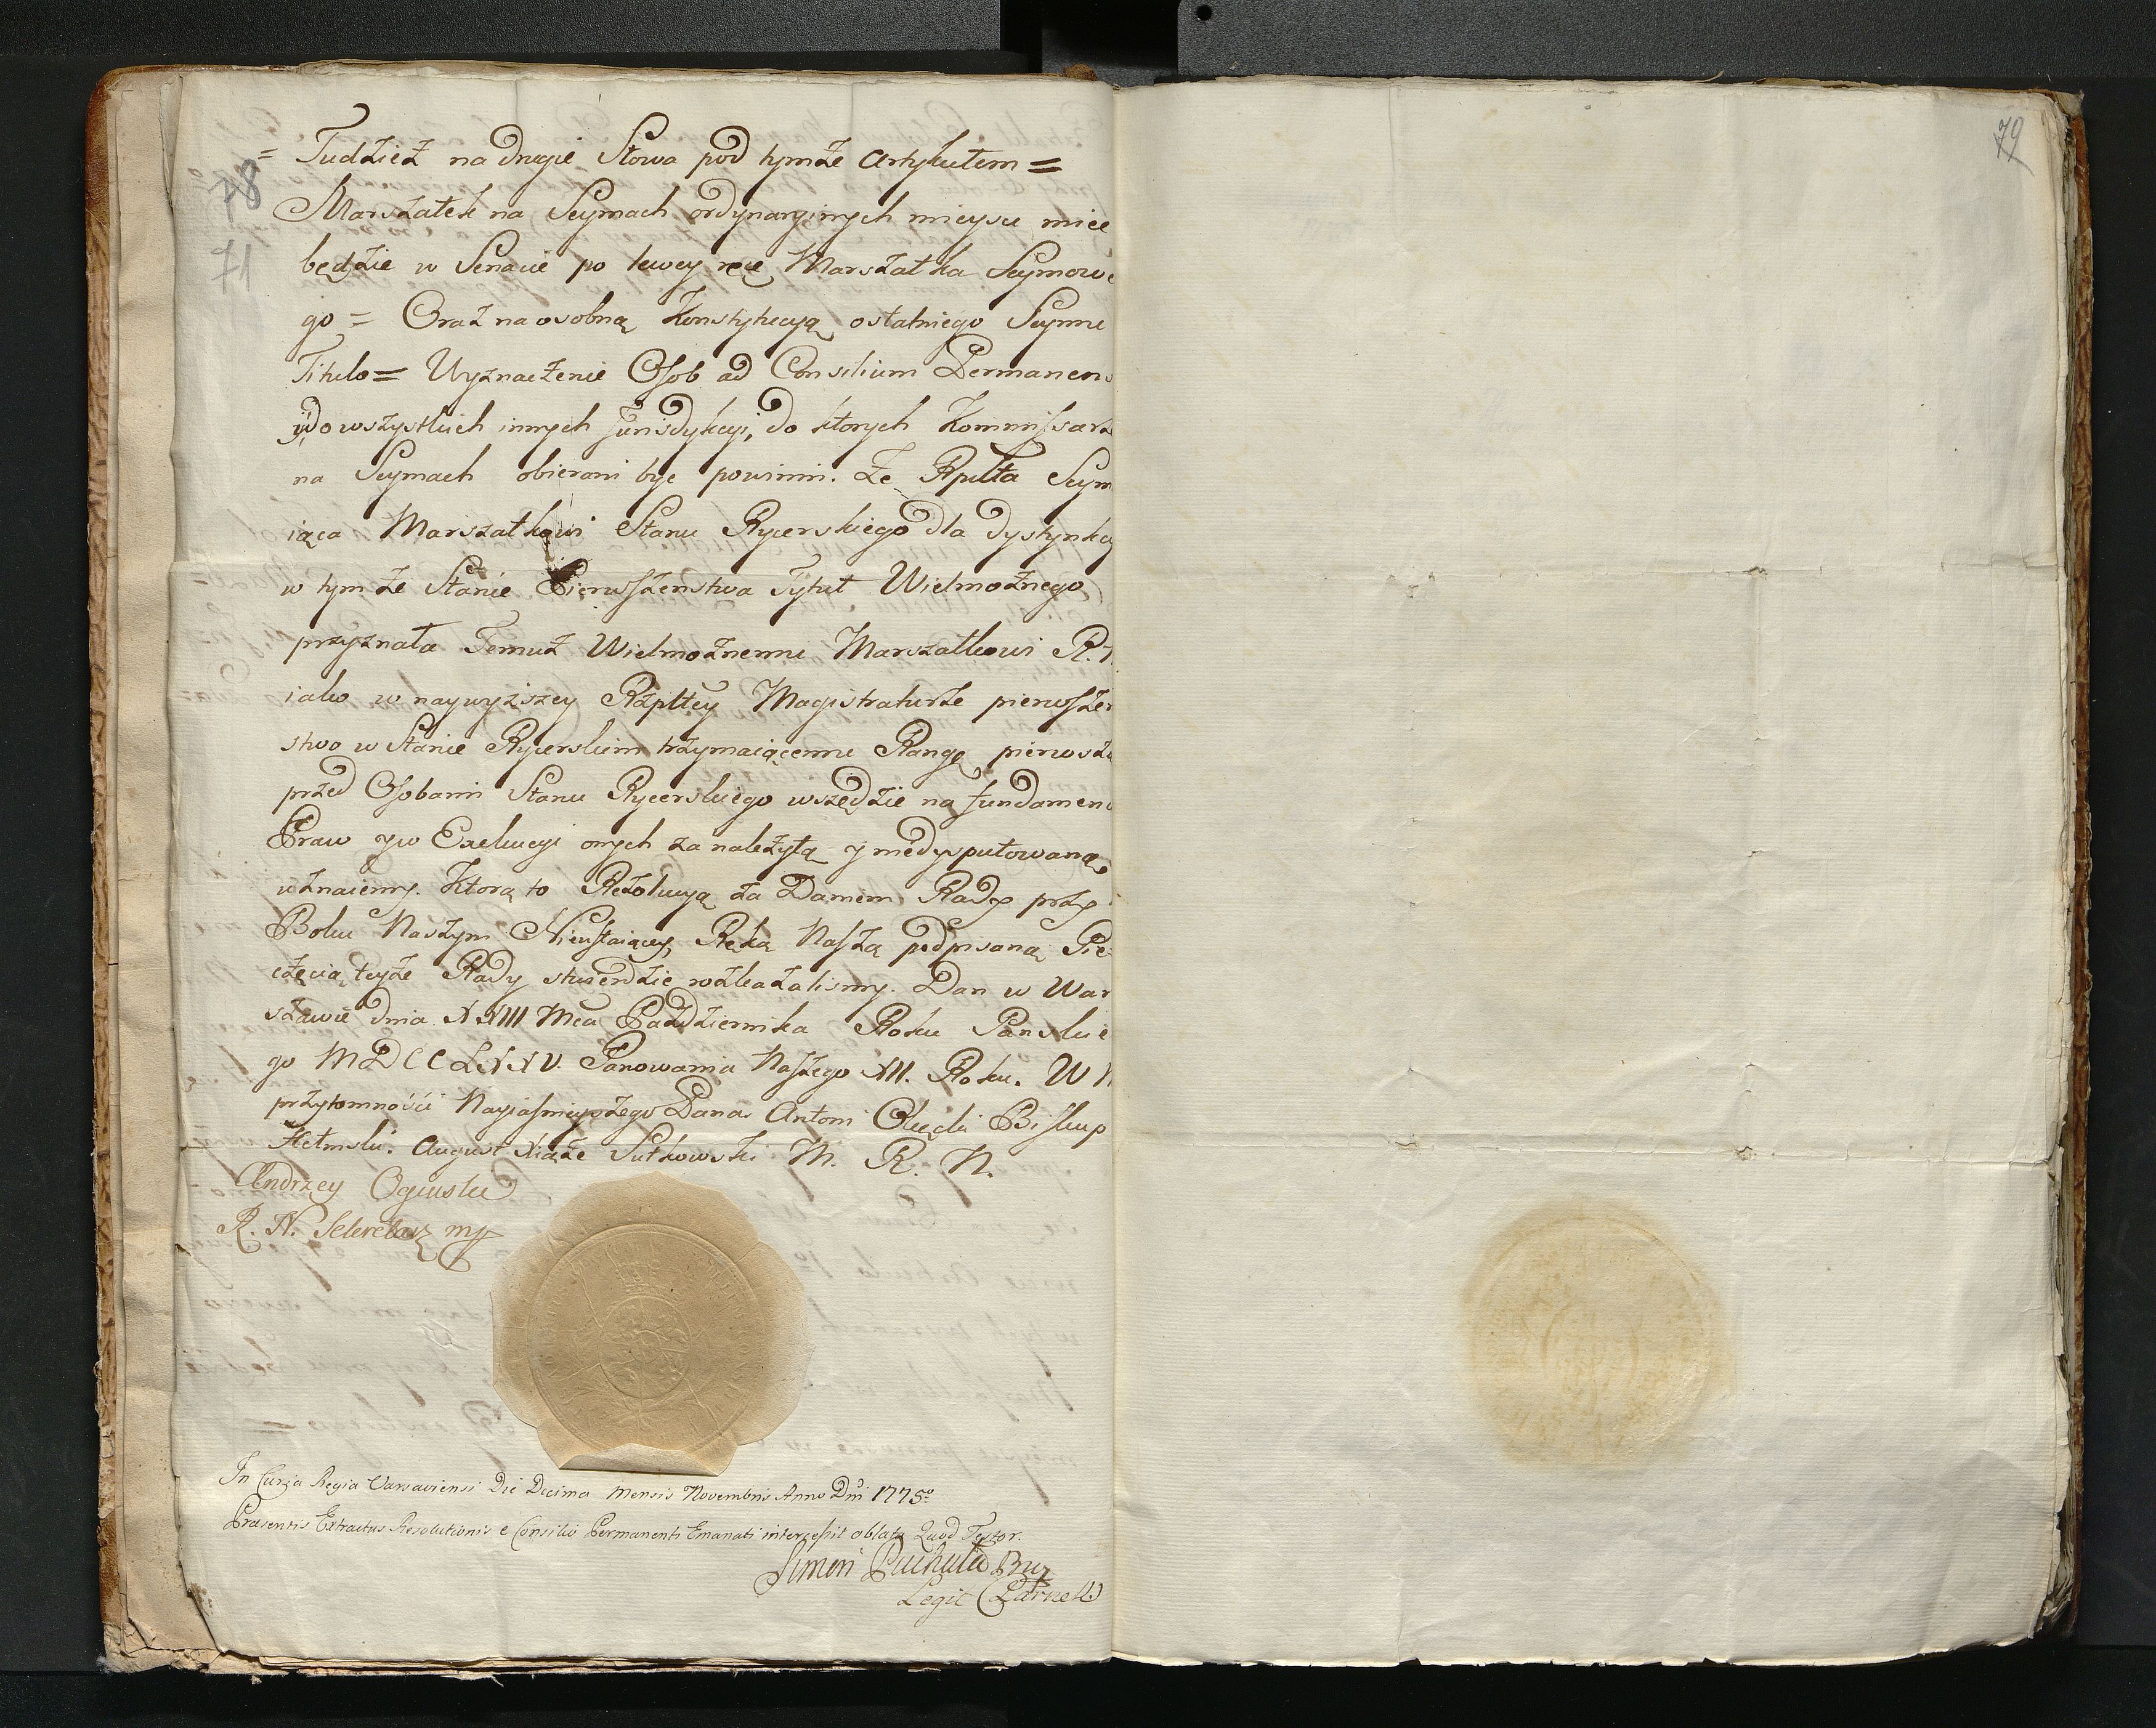 = Tudzież na drugie Słowa pod tymże Artykułem =
78
Marszałek na Seymach ordynaryinych mieysce mieć
71
będzie w Senacie po lewey ręce Marszałka Seymowe
go = Oraz na osobną Konstytucyą ostatniego Seymu
Titulo = Wyznaczenie Osob ad Consilium Permanens
y do wszystkich innych Jurisdykcyi, do ktorych Kommissarze
na Seymach obierani być powinni. Że Rplta Seym
iąca Marszałkowi Stanu Rycerskiego dla dystynkcy
w tymże Stanie Pierwszenstwa Tytuł Wielmożnego
przyznała Temuż Wielmożnemu Marszałkowi R. N
iako w naywyższey Rzpltey Magistraturze pierwszen
stwo w Stanie Rycerskim trzymaiącemu Rangę pierwszą
przed Osobami Stanu Rycerskiego wszędzie na fundamen
Praw y w Exekucyi onych za należytą y niedysputowaną
uznaiemy. Ktorą to Rezolucyą za Daniem Rady przy
Boku Naszym Nieustaiącey, Ręką Naszą podpisaną Pie
częcią teyże Rady stwierdzic rozkazalismy. Dan w War
szawie dnia XXIII Mca Pazdziernika Roku Panskie
go MDCCLXXV. Panowania Naszego XII. Roku. W N
przytomności Nayiasnieyszego Pana Antoni Okęcki Biskup
Hełmski. August Xiąże Sułkowski M. R. N.
Andrzey Ogiński
R. N. Sekretarz mp
In Curia Regia Varsaviensi Die Decima Mensis Novembris Anno Dni 1775º
Præsentis Extractus Resolutionis e Consilio Permanenti Emanati intercessit oblata Quod Testor.
Simon
Legit
79